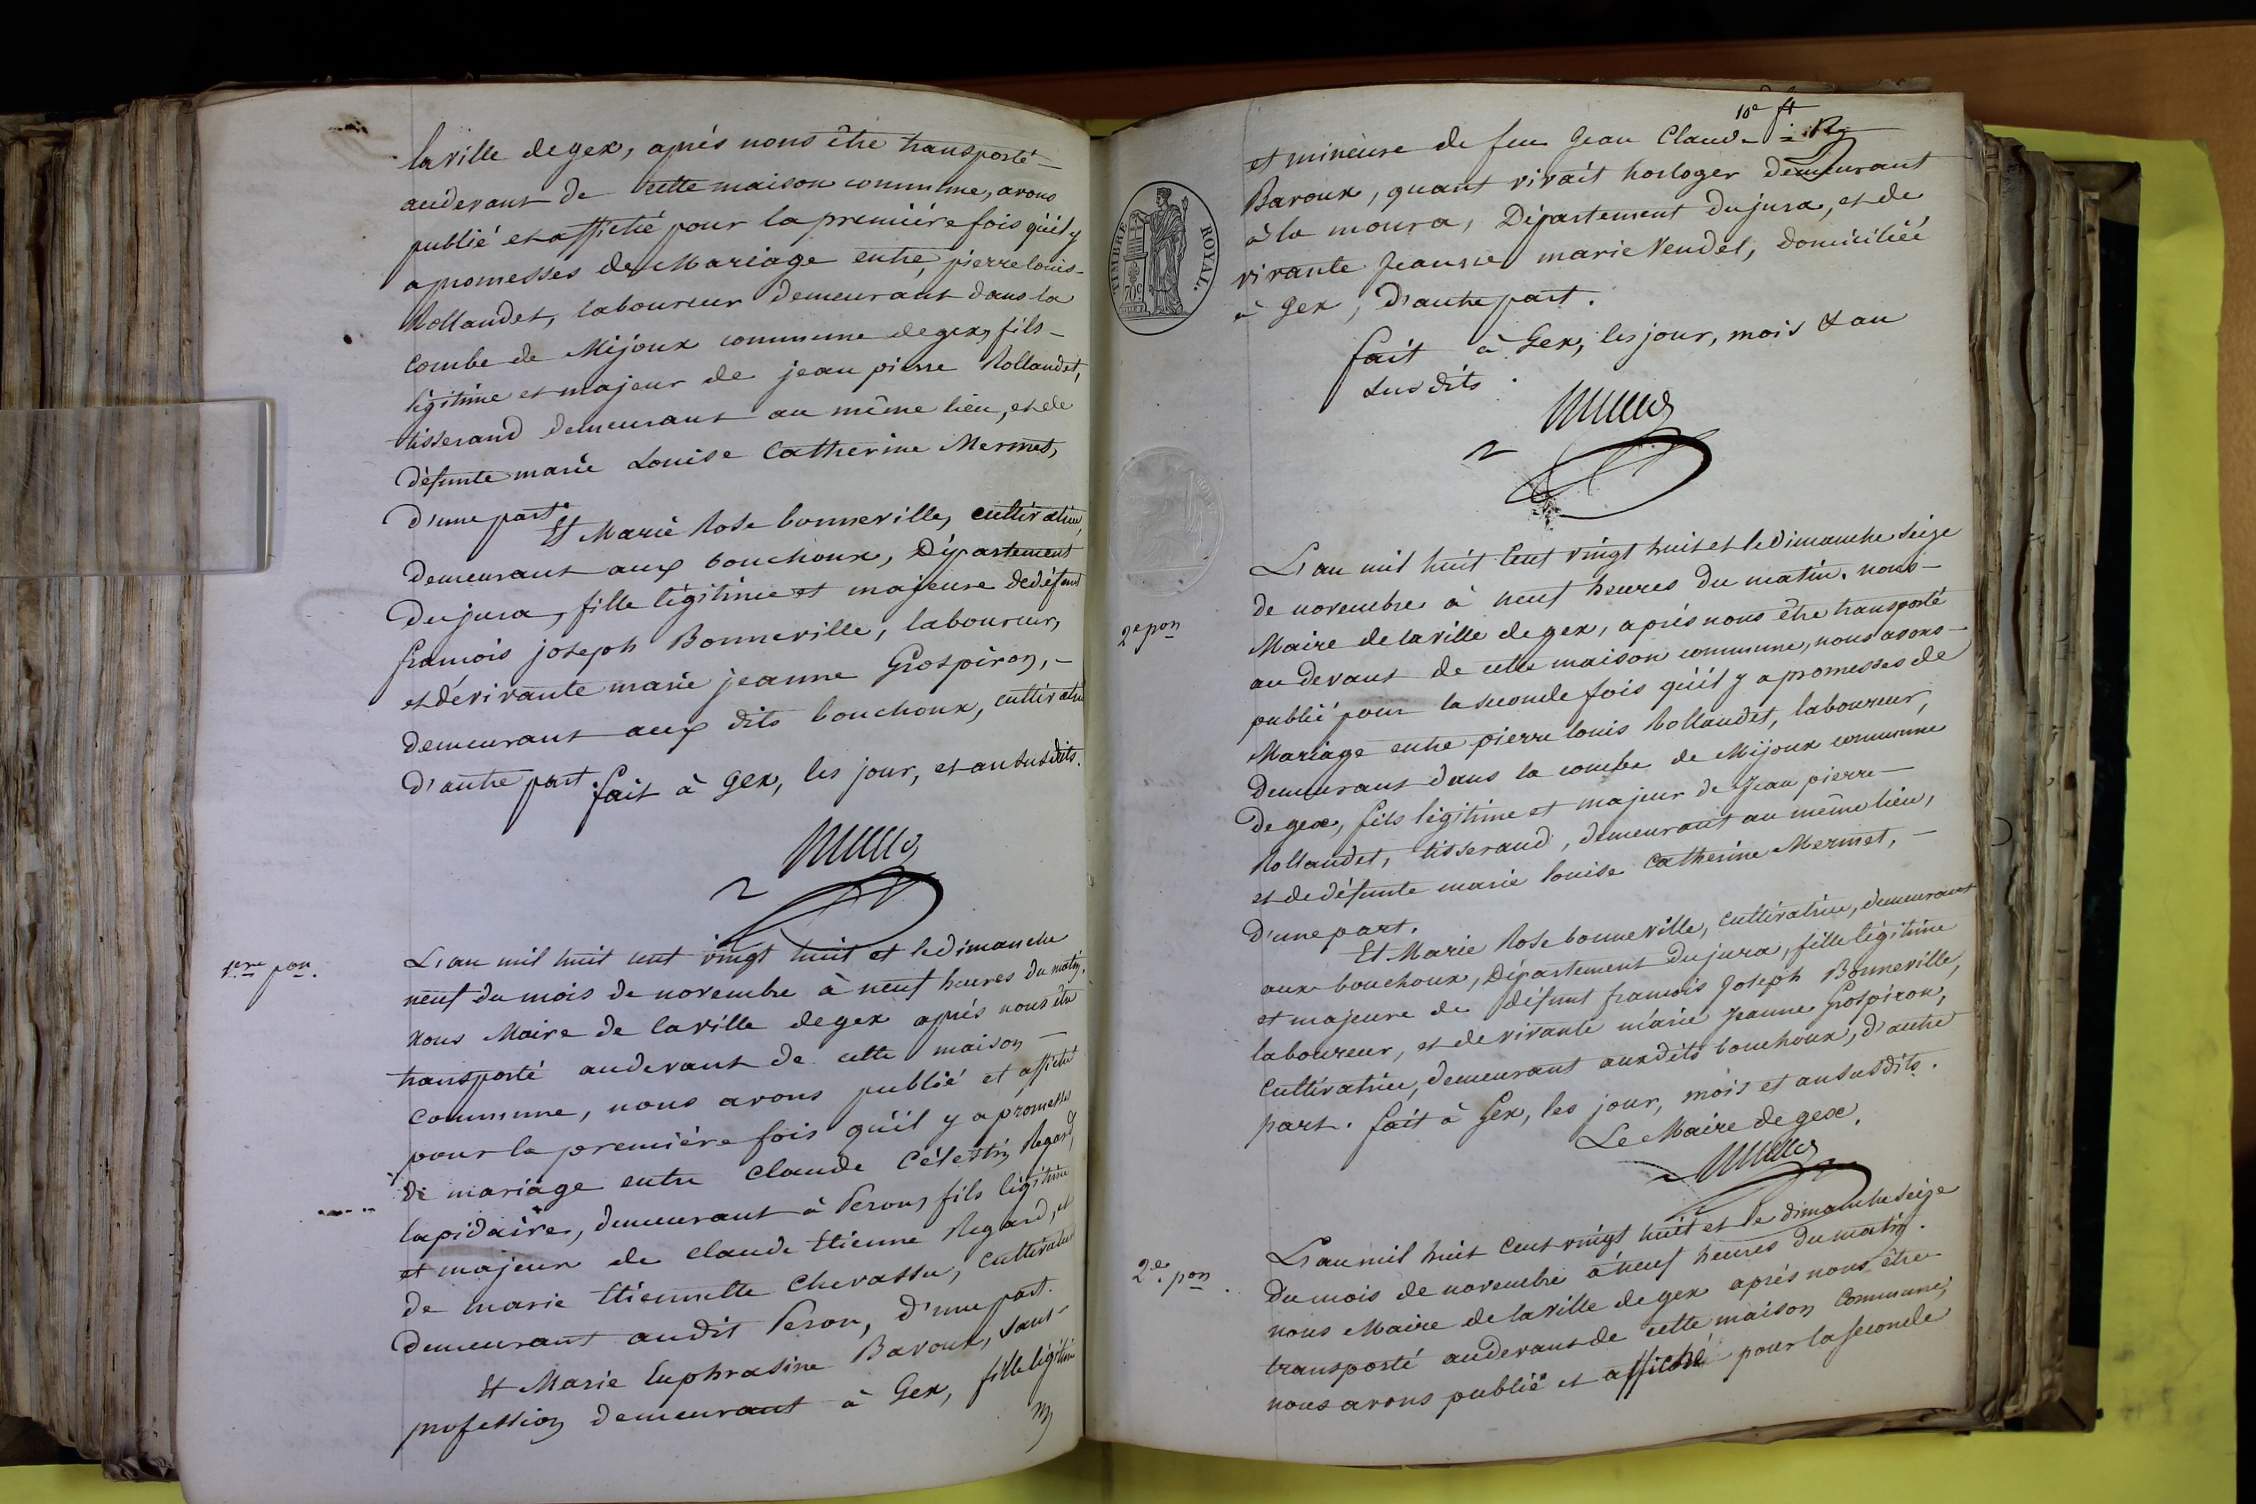 la ville de gex, après nous être transporté
audevant de cette maison commune, avons
publié et affiché pour la première fois qu'il y
a promesses de Mariage entre, pierre louis
Rollandet, laboureur demeurant dans la
combe de Mijoux commune de gex, fils
légitime et majeur de jean pierre Rollandet,
tisserand demeurant au même lieu, et de
défunte marie Louise Catherine Mermet,
d'une part.
Et Marie Rose bonneville, cultivatrice,
demeurant aux bouchoux, Département
du jura, fille légitime et majeure de défunt
françois joseph Bonneville, laboureur,
et dévivante marie jeanne Grospiron,
demeurant aux dits bouchoux, cultivatrice
d'autre part. fait à gex, les jour, et an susdits.
1.ere pon.
L'an mil huit cent vingt huit et le dimanche
neuf du mois de novembre à neuf heures du matin.
nous Maire de la ville de gex après nous être
transporté audevant de cette maison
commune, nous avons publié et affiché
pour la première fois qu'il y a promesses
de mariage entre Claude Célestin Regard,
lapidaire, demeurant à Peron, fils légitime
et majeur de Claude Etienne Regard, et
de marie Etiennette Chevassu, cultivateur
demeurant audit Peron, d'une part.
Et Marie Euphrasine Baroux, sans
profession demeurant à Gex, fille légitime
10e ft
et mineure de feu Jean Claude
Baroux, quant vivait horloger demeurant
à la moura, Département du jura, et de
vivante Jeanne marie Vendel, domiciliée
à gex, d'autre part.
fait à Gex, les jour, mois & an
susdits.
TIMBRE ROYAL.
70c
2e pon
L'an mil huit Cent vingt huit et le dimanche seize
de novembre à neuf heures du matin. nous
Maire de la ville de gex, après nous être transporté
au devant de cette maison commune, nous avons
publié pour la seconde fois qu'il y a promesses de
Mariage entre pierre louis Rollandet, laboureur,
demeurant dans la combe de Mijoux commune
de gex, fils légitime et majeur de Jean pierre
Rollandet, tisserand, demeurant au même lieu,
et de défunte marie louise Catherine Mermet,
d'une part.
Et Marie Rose bonneville, cultivatrice, demeurant
aux bouchoux, Département du jura, fille légitime
et majeure de défunt françois Joseph Bonneville,
laboureur, et de vivante marie Jeanne Grospiron,
cultivatrice, demeurant aux dits bouchoux, d'autre
part. fait à Gex, les jour, mois et an susdits.
Le Maire de gex.
2e. pon.
L'an mil huit Cent vingt huit et le dimanche seize
du mois de novembre à neuf heures du matin.
nous Maire de la ville de gex après nous être
transporté audevant de cette maison commune,
nous avons publié et affiché pour la seconde